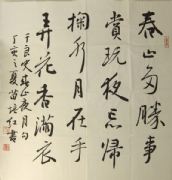 春山多勝事
賞玩夜忘歸
掬水月在手
弄花香滿衣
于良史春山夜月句
丁亥之夏苗培红書